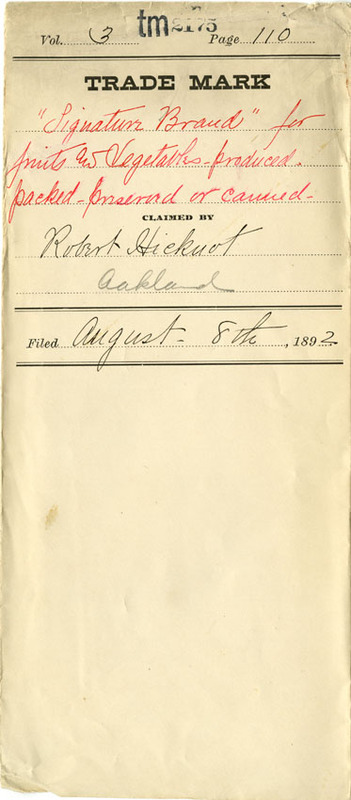 Vol. 3 tm 2175 Page 110
TRADE MARK
"Signature Brand", for
fruits & Vegetables - produced.
packed - preserved or canned -
CLAIMED BY
Robert Hickmot
Oakland
Filed August - 8th, 1892